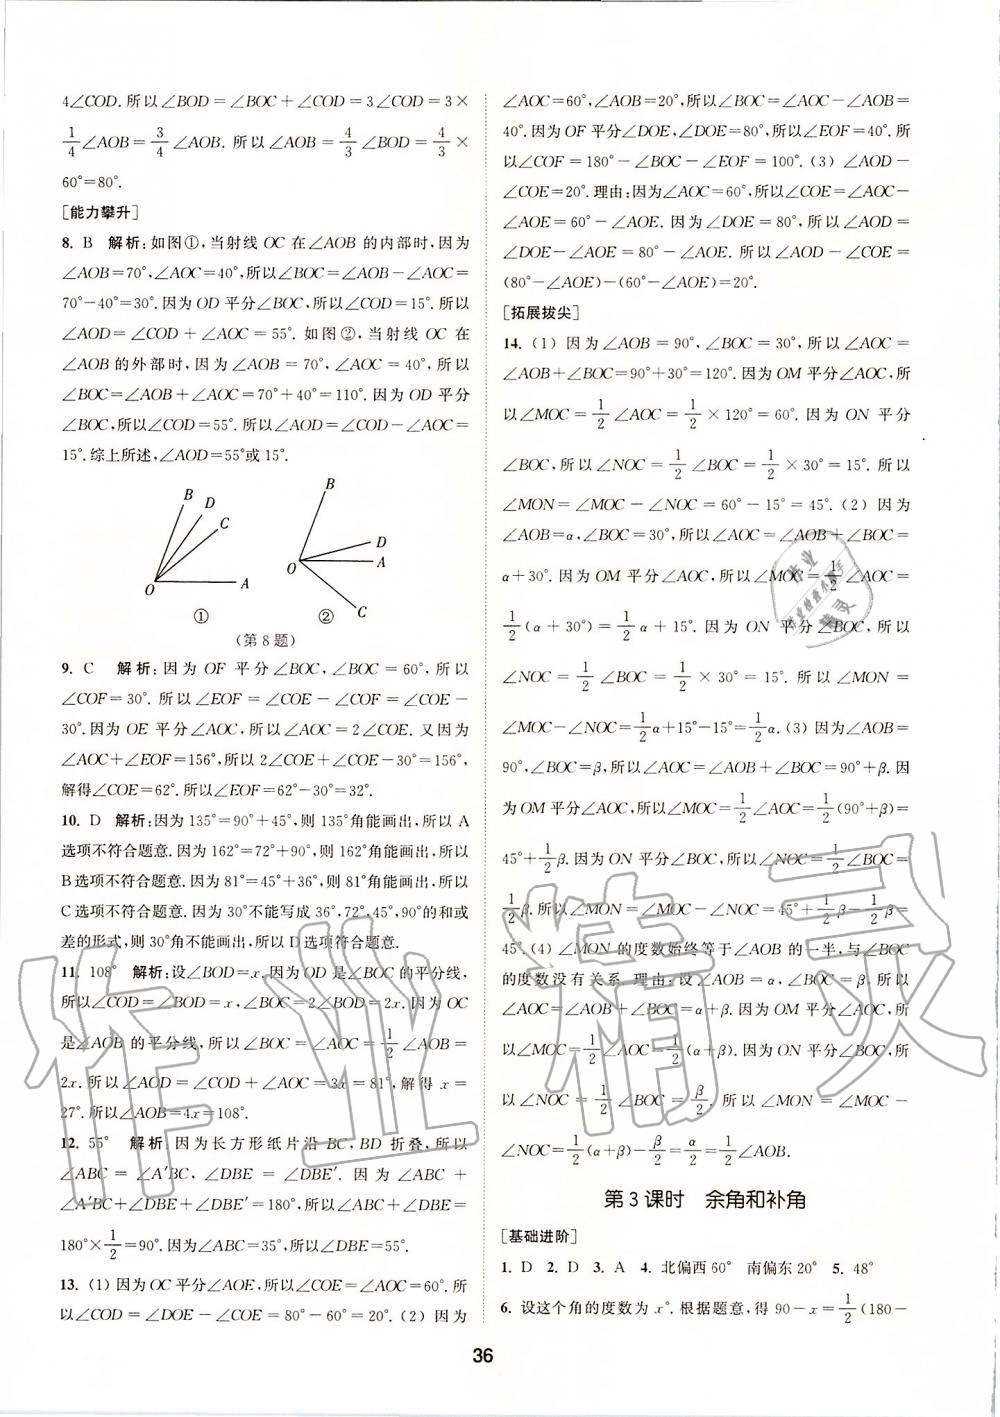 4∠COD.所以∠BOD=∠BOC+∠COD=3∠COD=3×
1/4∠AOB=3/4∠AOB.所以∠AOB=4/3∠BOD=4/3×
60°=80°.
[能力攀升]
8. B 解析:如图①,当射线OC在∠AOB的内部时,因为
∠AOB=70°,∠AOC=40°,所以∠BOC=∠AOB-∠AOC=
70°-40°=30°.因为OD平分∠BOC,所以∠COD=15°.所以
∠AOD=∠COD+∠AOC=55°.如图②,当射线OC在
∠AOB的外部时,因为∠AOB=70°,∠AOC=40°,所以
∠BOC=∠AOB+∠AOC=70°+40°=110°.因为OD平分
∠BOC,所以∠COD=55°.所以∠AOD=∠COD-∠AOC=
15°.综上所述,∠AOD=55°或15°.
B
D
C
O
A
①
B
D
A
O
C
②
(第8题)
9. C 解析:因为OF平分∠BOC,∠BOC=60°,所以
∠COF=30°.所以∠EOF=∠COE-∠COF=∠COE-
30°.因为OE平分∠AOC,所以∠AOC=2∠COE.又因为
∠AOC+∠EOF=156°,所以2∠COE+∠COE-30°=156°,
解得∠COE=62°.所以∠EOF=62°-30°=32°.
10. D 解析:因为135°=90°+45°,则135°角能画出,所以A
选项不符合题意.因为162°=72°+90°,则162°角能画出,所以
B选项不符合题意.因为81°=45°+36°,则81°角能画出,所以
C选项不符合题意.因为30°不能写成36°,72°,45°,90°的和或
差的形式,则30°角不能画出,所以D选项符合题意.
11. 108° 解析:设∠BOD=x.因为OD是∠BOC的平分线,
所以∠COD=∠BOD=x,∠BOC=2∠BOD=2x.因为OC
是∠AOB的平分线,所以∠BOC=∠AOC=1/2∠AOB=
2x.所以∠AOD=∠COD+∠AOC=3x=81°,解得x=
27°.所以∠AOB=4x=108°.
12. 55° 解析:因为长方形纸片沿BC,BD折叠,所以
∠ABC=∠A′BC,∠DBE=∠DBE′.因为∠ABC+
∠A′BC+∠DBE+∠DBE′=180°,所以∠ABC+∠DBE=
180°×1/2=90°.因为∠ABC=35°,所以∠DBE=55°.
13. (1)因为OC平分∠AOE,所以∠COE=∠AOC=60°.所
以∠COD=∠DOE-∠COE=80°-60°=20°.(2)因为
∠AOC=60°,∠AOB=20°,所以∠BOC=∠AOC-∠AOB=
40°.因为OF平分∠DOE,∠DOE=80°,所以∠EOF=40°.所
以∠COF=180°-∠BOC-∠EOF=100°.(3)∠AOD-
∠COE=20°.理由:因为∠AOC=60°,所以∠COE=∠AOC-
∠AOE=60°-∠AOE.因为∠DOE=80°,所以∠AOD=
∠DOE-∠AOE=80°-∠AOE.所以∠AOD-∠COE=
(80°-∠AOE)-(60°-∠AOE)=20°.
[拓展拔尖]
14. (1)因为∠AOB=90°,∠BOC=30°,所以∠AOC=
∠AOB+∠BOC=90°+30°=120°.因为OM平分∠AOC,所
以∠MOC=1/2∠AOC=1/2×120°=60°.因为ON平分
∠BOC,所以∠NOC=1/2∠BOC=1/2×30°=15°.所以
∠MON=∠MOC-∠NOC=60°-15°=45°.(2)因为
∠AOB=α,∠BOC=30°,所以∠AOC=∠AOB+∠BOC=
α+30°.因为OM平分∠AOC,所以∠MOC=1/2∠AOC=
1/2(α+30°)=1/2α+15°.因为ON平分∠BOC,所以
∠NOC=1/2∠BOC=1/2×30°=15°.所以∠MON=
∠MOC-∠NOC=1/2α+15°-15°=1/2α.(3)因为∠AOB=
90°,∠BOC=β,所以∠AOC=∠AOB+∠BOC=90°+β.因
为OM平分∠AOC,所以∠MOC=1/2∠AOC=1/2(90°+β)=
45°+1/2β.因为ON平分∠BOC,所以∠NOC=1/2∠BOC=
1/2β.所以∠MON=∠MOC-∠NOC=45°+1/2β-1/2β=
45°.(4)∠MON的度数始终等于∠AOB的一半,与∠BOC
的度数没有关系.理由:设∠AOB=α,∠BOC=β,所以
∠AOC=∠AOB+∠BOC=α+β.因为OM平分∠AOC,所
以∠MOC=1/2∠AOC=1/2(α+β).因为ON平分∠BOC,所
以∠NOC=1/2∠BOC=β/2.所以∠MON=∠MOC-
∠NOC=1/2(α+β)-β/2=α/2=1/2∠AOB.
第3课时 余角和补角
[基础进阶]
1. D 2. D 3. A 4. 北偏西60° 南偏东20° 5. 48°
6. 设这个角的度数为x°.根据题意,得90-x=1/2(180-
36
作业精灵